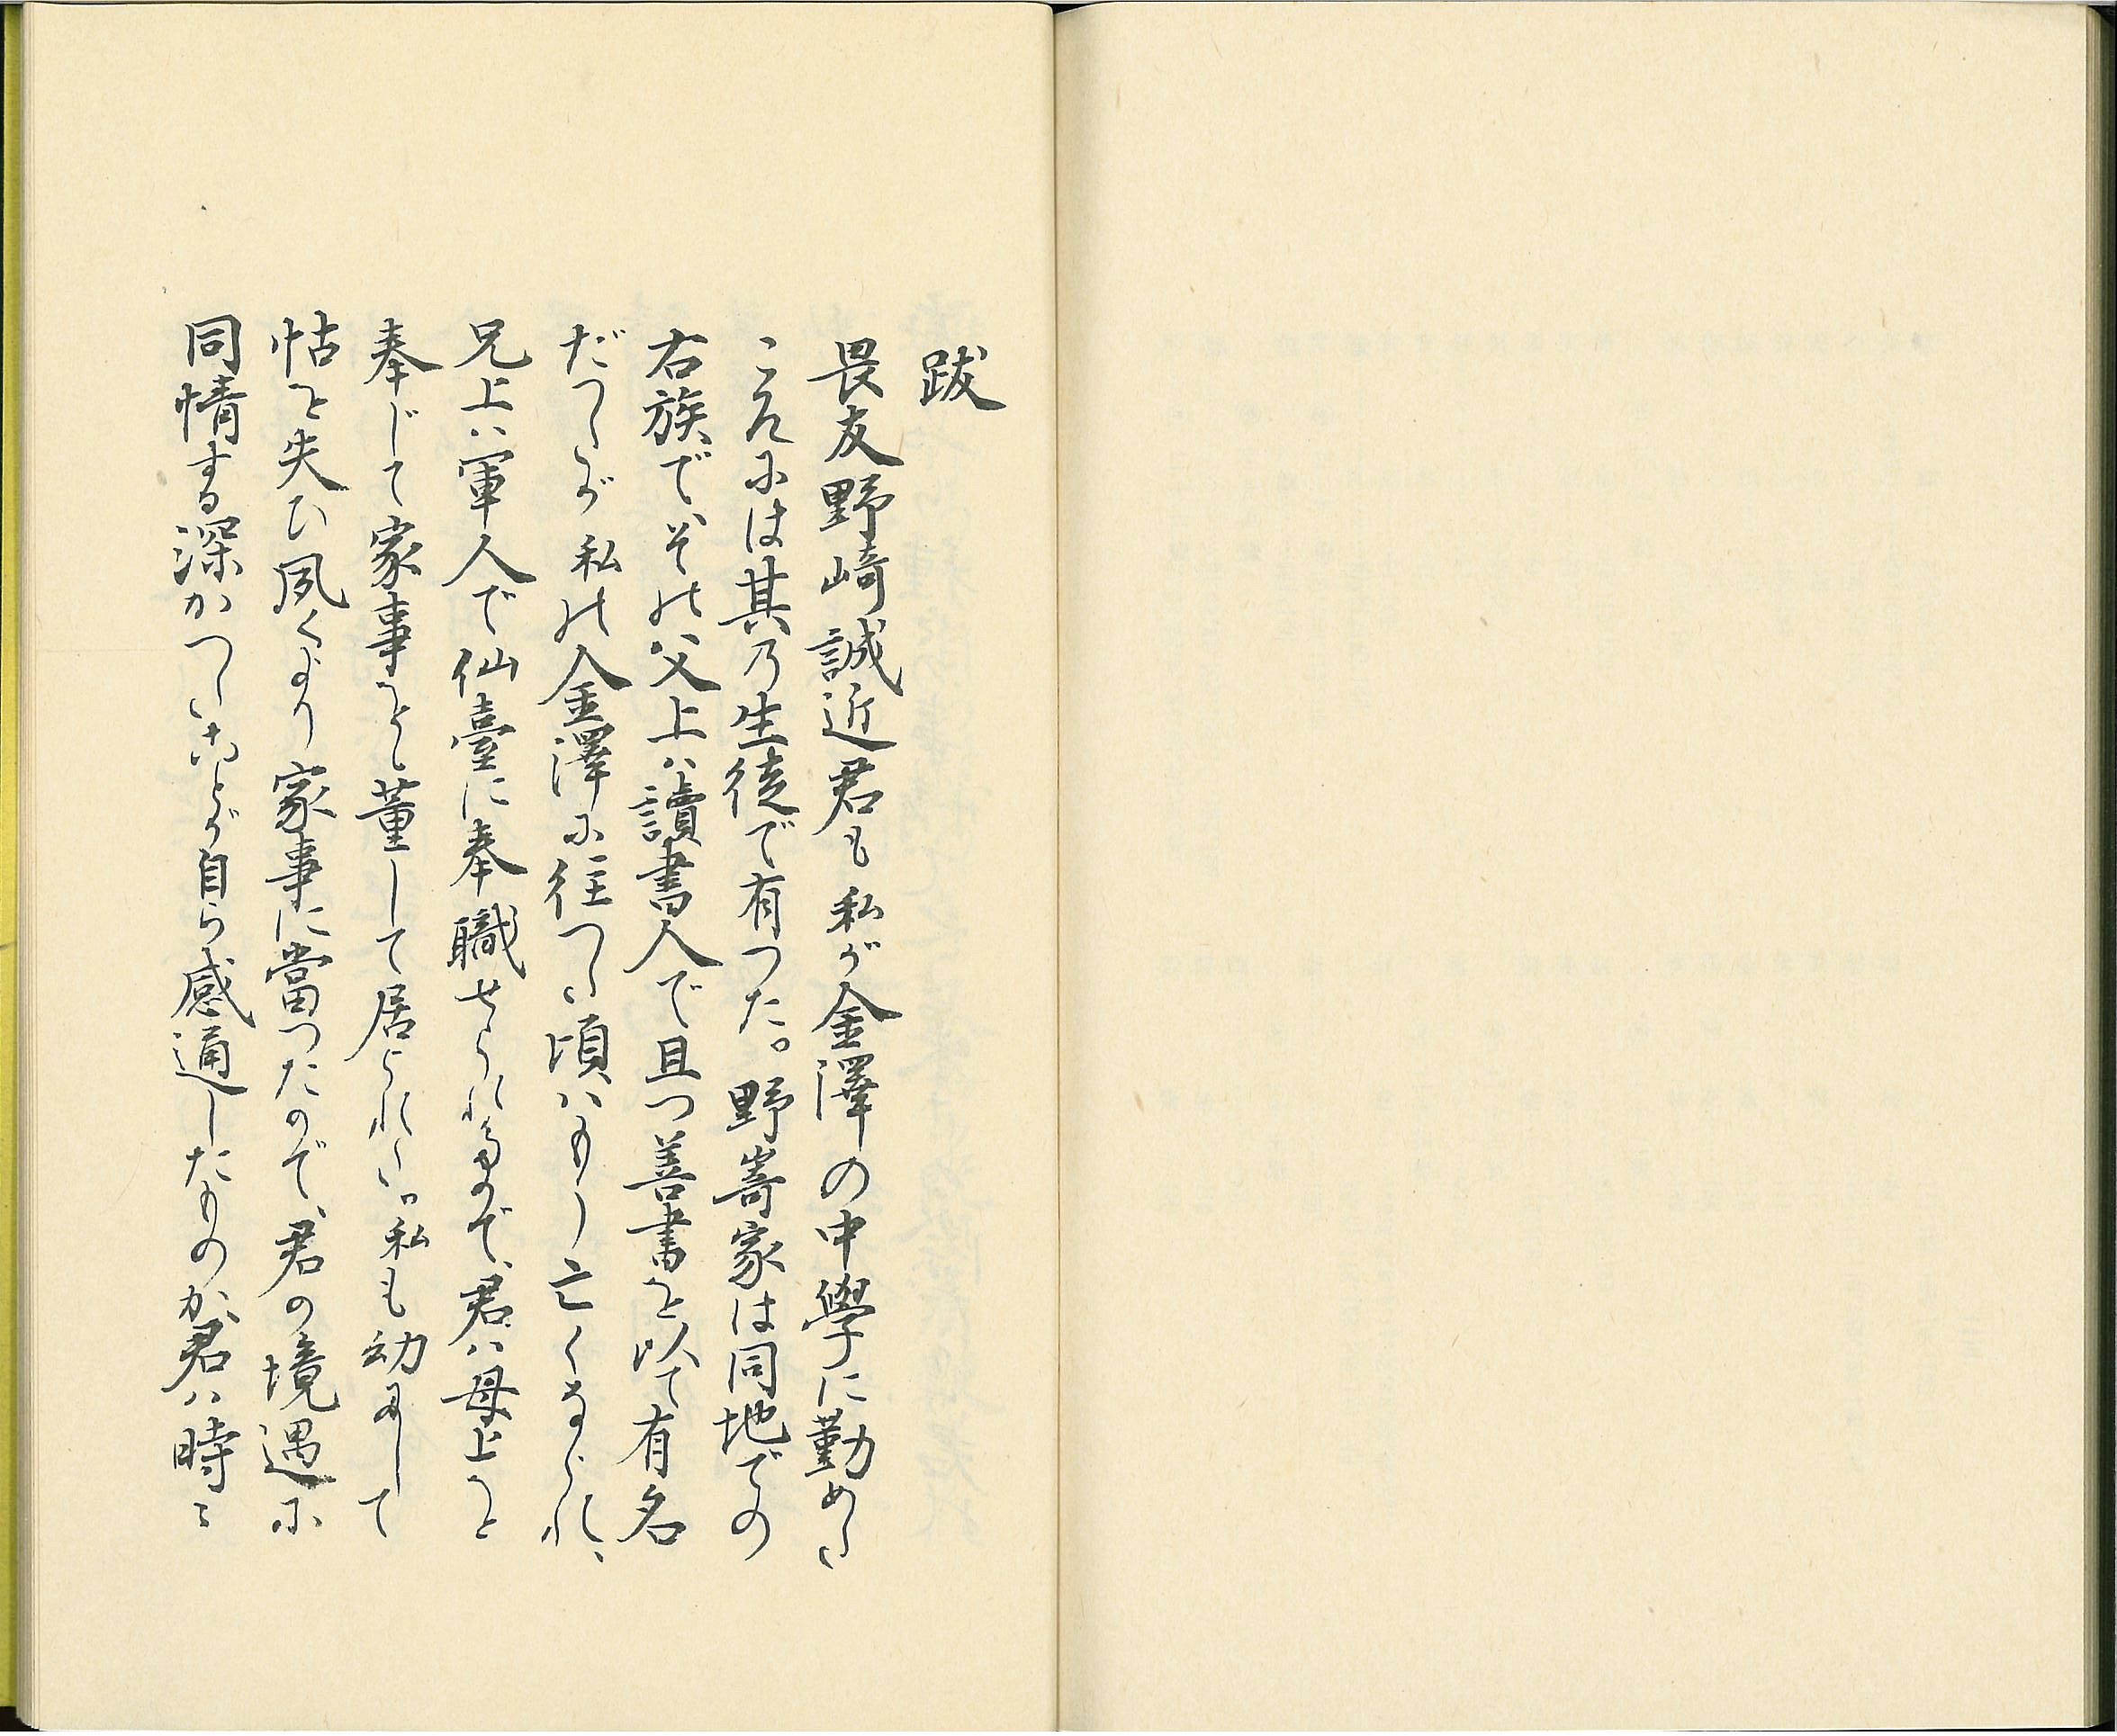 跋
畏友野崎誠近君も私が金澤の中學に勤めた
ころには其乃生徒で有つた。野嵜家は同地での
右族で、その父上は讀書人で且つ善書を以て有名
だつたが私の金澤に往つた頃はもう亡くなられ、
兄上は軍人で仙臺に奉職せられるので、君は母上を
奉じて家事を董して居られた。私も幼にして
怙を失ひ夙くより家事に當つたので、君の境遇に
同情する深かつたことが自ら感通したものか、君は時々